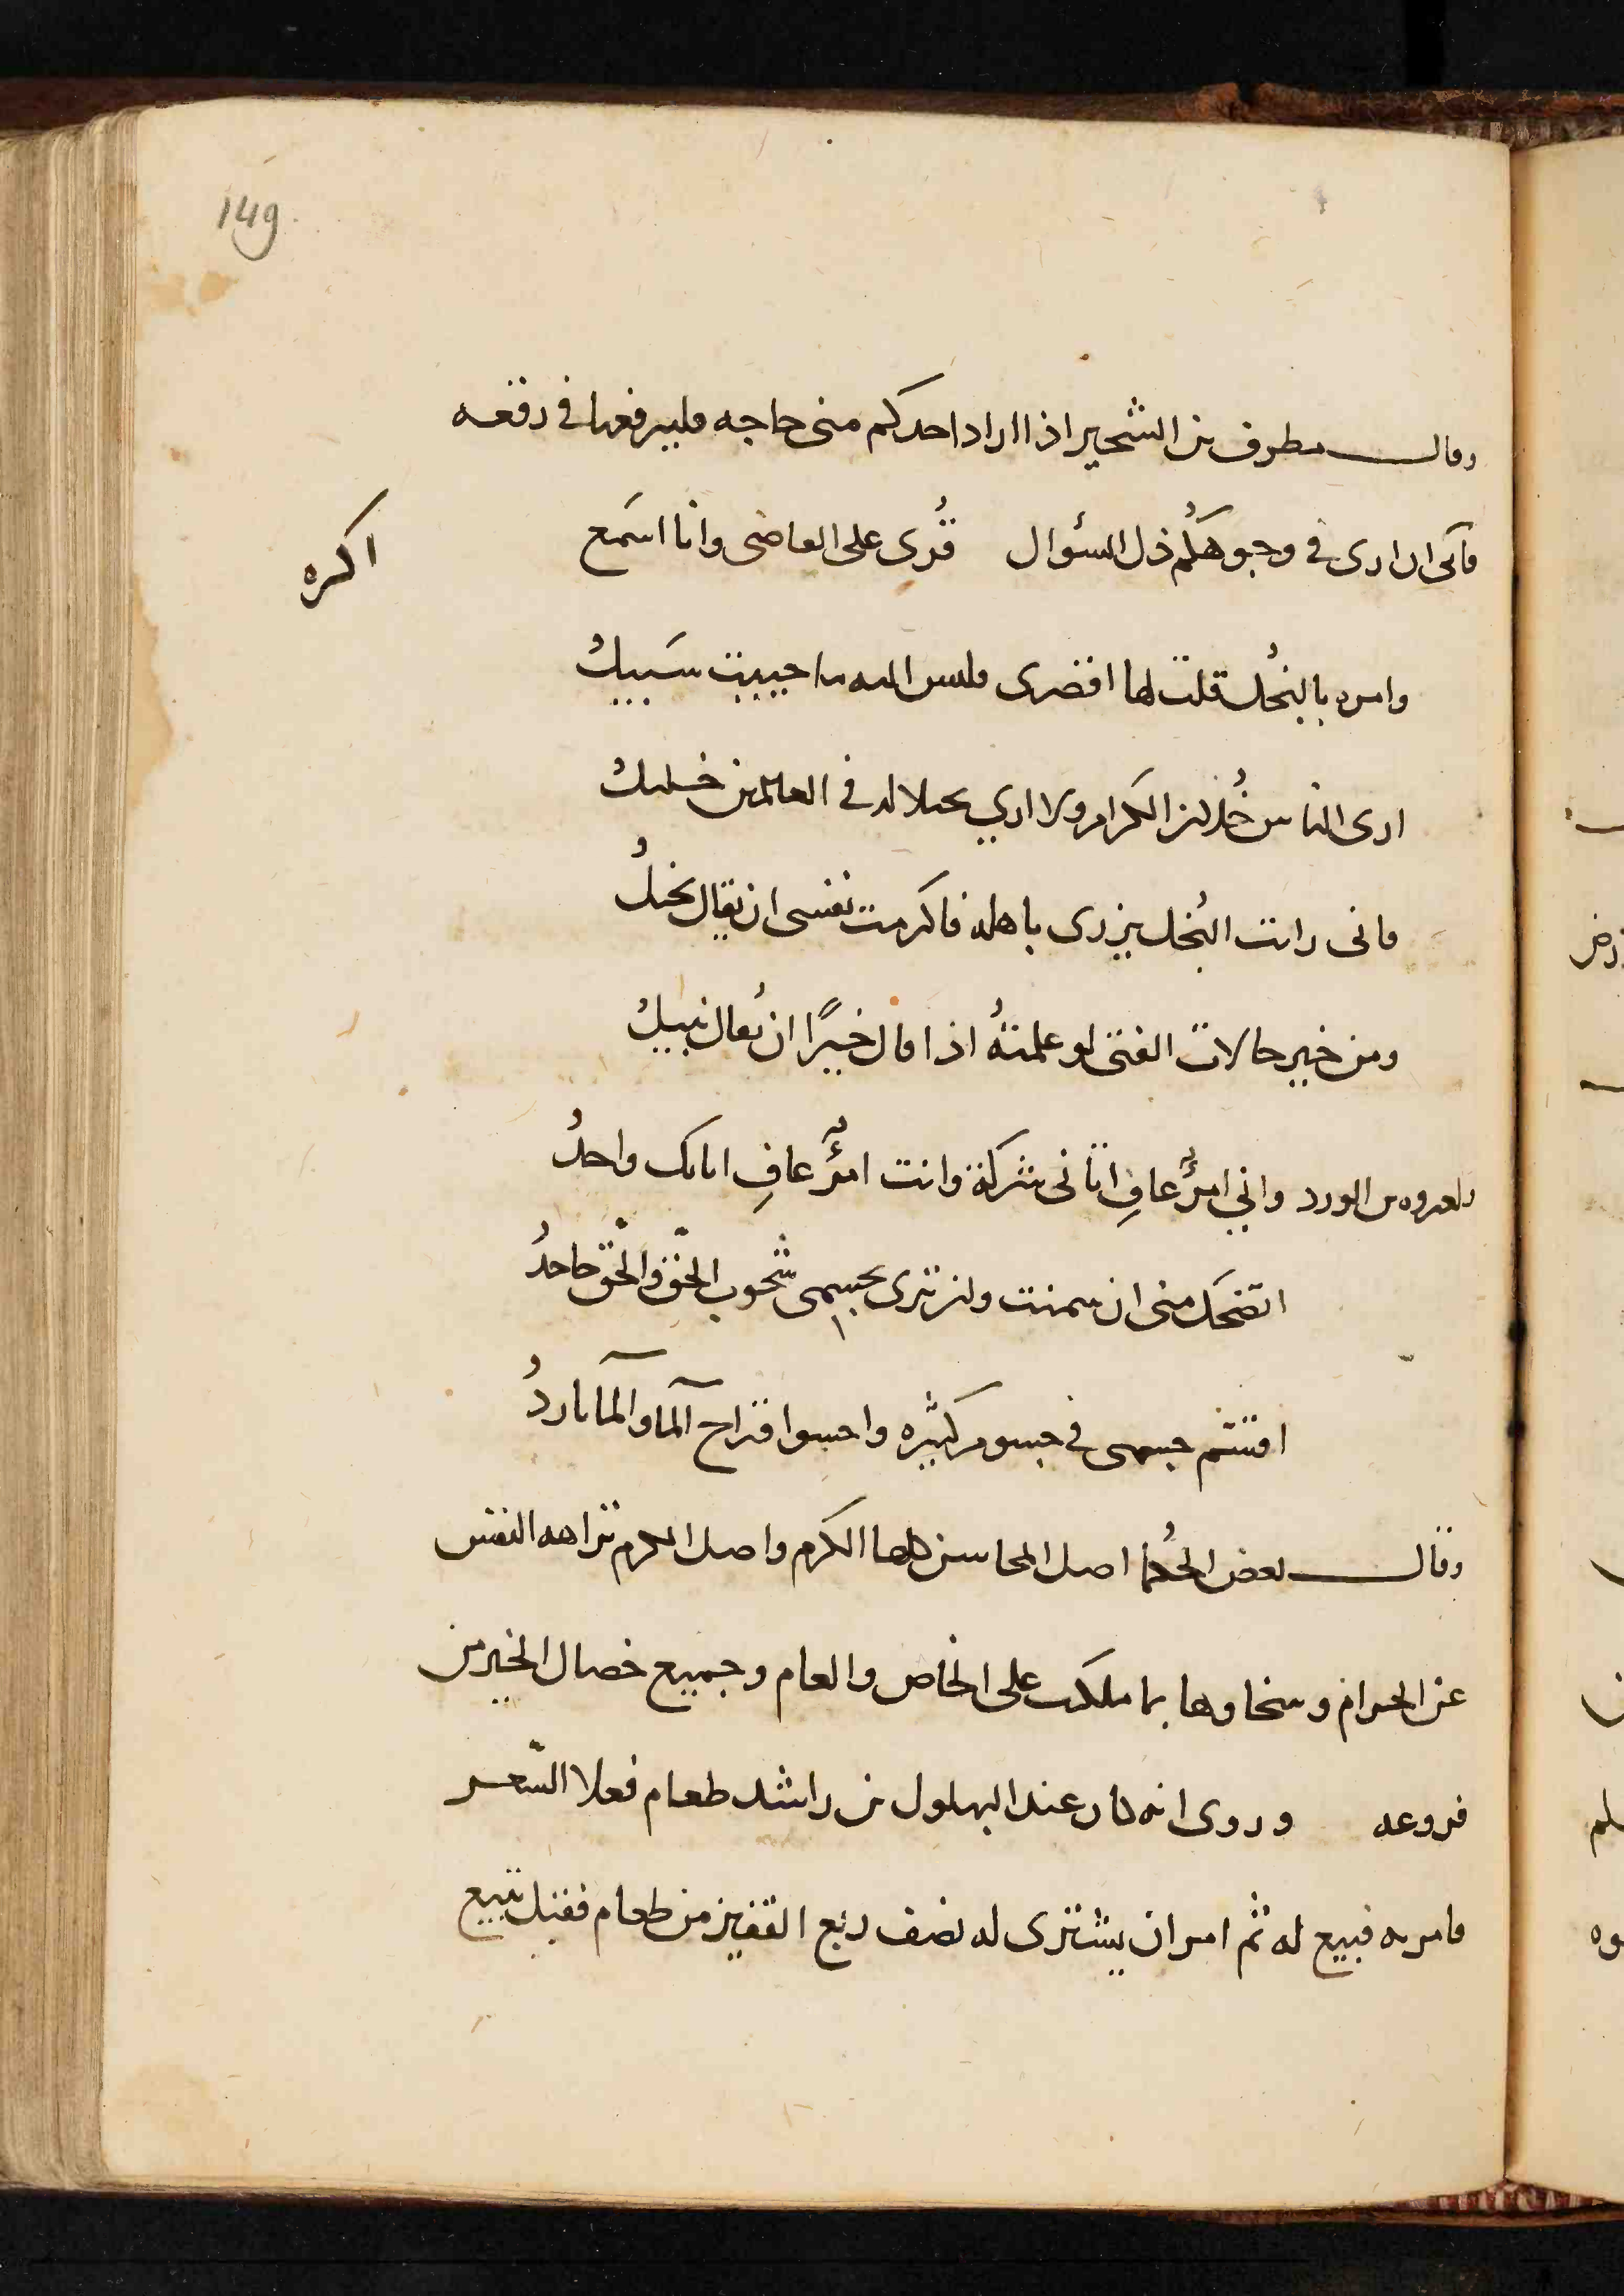 149
وقال مطرف بن الشخير اذا اراد احدكم منى حاجه فليرفعها فى رقعه
فانى ان ارى فى وجوهكم ذل السؤال قُرى على القاضى وانا اسمع
اكره
وامره بالبُخل قلت لها اقصرى فليس اليه ما حييت سَبيلُ
ارى الناس خُلان الكرام ولا اري بخيلا له فى العالمين خليلُ
فانى رايت البُخل يزرى باهله فاكرمت نفسى ان يقال بخيلُ
ومن خير حالات الفتى لو علمتهُ اذا قال خيرًا ان يُقال نبيلُ
لعروه بن الورد واني امرؤٌ عافِ اناثى شركة وانت امرؤٌ عافِ اناك واحدُ
اتضحك منى ان سمنت ولن ترى بجسمى شحوب الحقّ والحقّ جاحدُ
اقسّم جسمى فى جسوم كثيره واحسوا قراح المآ والمآ باردُ
وقال بعض الحُكما اصل المحاسن كلها الكرم واصل الكرم نزاهه النفس
عن الحرام وسخاوها بما ملكت على الخاص والعام وجميع خصال الخير من
فروعه وروى انه كان عند البهلول بن راشد طعام فغلا السّعر
فامر به فبيع له ثم امر ان يشترى له نصف ربع القفيز من طعام فقيل تبيع